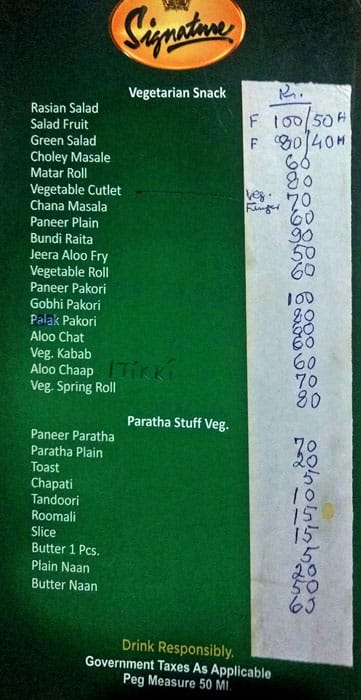 Signature
Vegetarian Snack
Rasian Salad
Salad Fruit
Green Salad
Choley Masale
Matar Roll
Vegetable Cutlet
Chana Masala
Paneer Plain
Bundi Raita
Jeera Aloo Fry
Vegetable Roll
Paneer Pakori
Gobhi Pakori
Palak Pakori
Aloo Chat
Veg. Kabab
Aloo Chaap / Tikki
Veg. Spring Roll
Paratha Stuff Veg.
Paneer Paratha
Paratha Plain
Toast
Chapati
Tandoori
Roomali
Slice
Butter 1 Pcs.
Plain Naan
Butter Naan
Rs.
F 100/50 H
F 80/40 H
60
80
Veg. Finger 70
60
90
50
60
100
80
80
60
60
70
80
70
20
5
10
15
15
5
20
50
60
Drink Responsibly.
Government Taxes As Applicable
Peg Measure 50 Ml